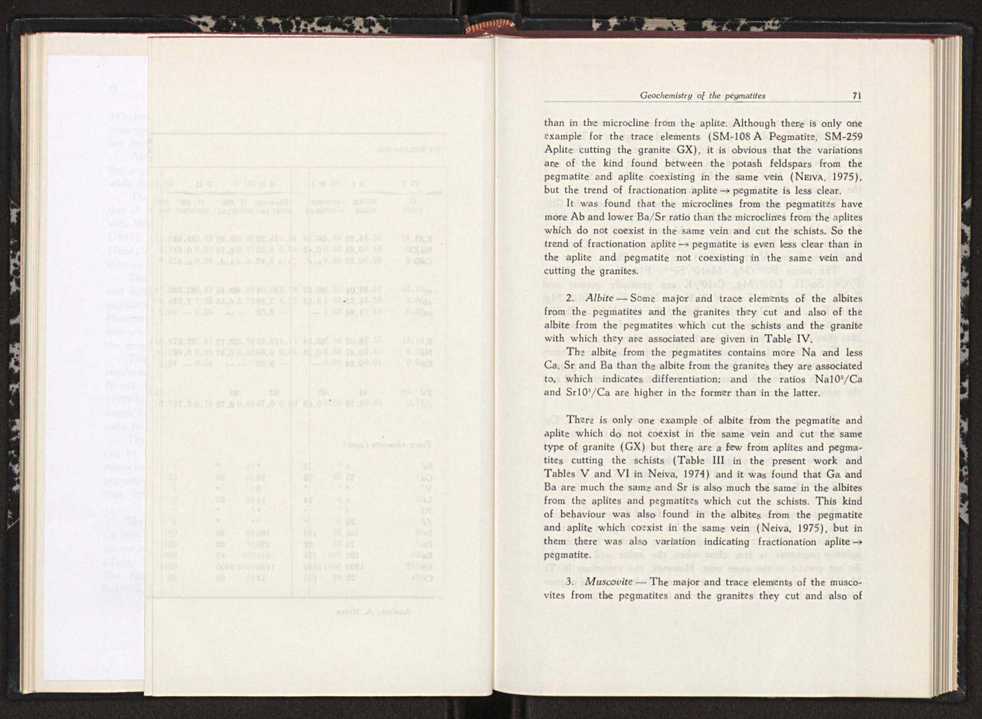 Geochemistry of the pegmatites 71
than in the microcline from the aplite. Although there is only one
example for the trace elements (SM-108 A Pegmatite, SM-259
Aplite cutting the granite GX), it is obvious that the variations
are of the kind found between the potash feldspars from the
pegmatite and aplite coexisting in the same vein (NEIVA, 1975),
but the trend of fractionation aplite → pegmatite is less clear.
It was found that the microclines from the pegmatites have
more Ab and lower Ba/Sr ratio than the microclines from the aplites
which do not coexist in the same vein and cut the schists. So the
trend of fractionation aplite → pegmatite is even less clear than in
the aplite and pegmatite not coexisting in the same vein and
cutting the granites.
2. Albite — Some major and trace elements of the albites
from the pegmatites and the granites they cut and also of the
albite from the pegmatites which cut the schists and the granite
with which they are associated are given in Table IV.
The albite from the pegmatites contains more Na and less
Ca, Sr and Ba than the albite from the granites they are associated
to, which indicates differentiation; and the ratios Na10³/Ca
and Sr10³/Ca are higher in the former than in the latter.
There is only one example of albite from the pegmatite and
aplite which do not coexist in the same vein and cut the same
type of granite (GX) but there are a few from aplites and pegma-
tites cutting the schists (Table III in the present work and
Tables V and VI in Neiva, 1974) and it was found that Ga and
Ba are much the same and Sr is also much the same in the albites
from the aplites and pegmatites which cut the schists. This kind
of behaviour was also found in the albites from the pegmatite
and aplite which coexist in the same vein (Neiva, 1975), but in
them there was also variation indicating fractionation aplite →
pegmatite.
3. Muscovite — The major and trace elements of the musco-
vites from the pegmatites and the granites they cut and also of